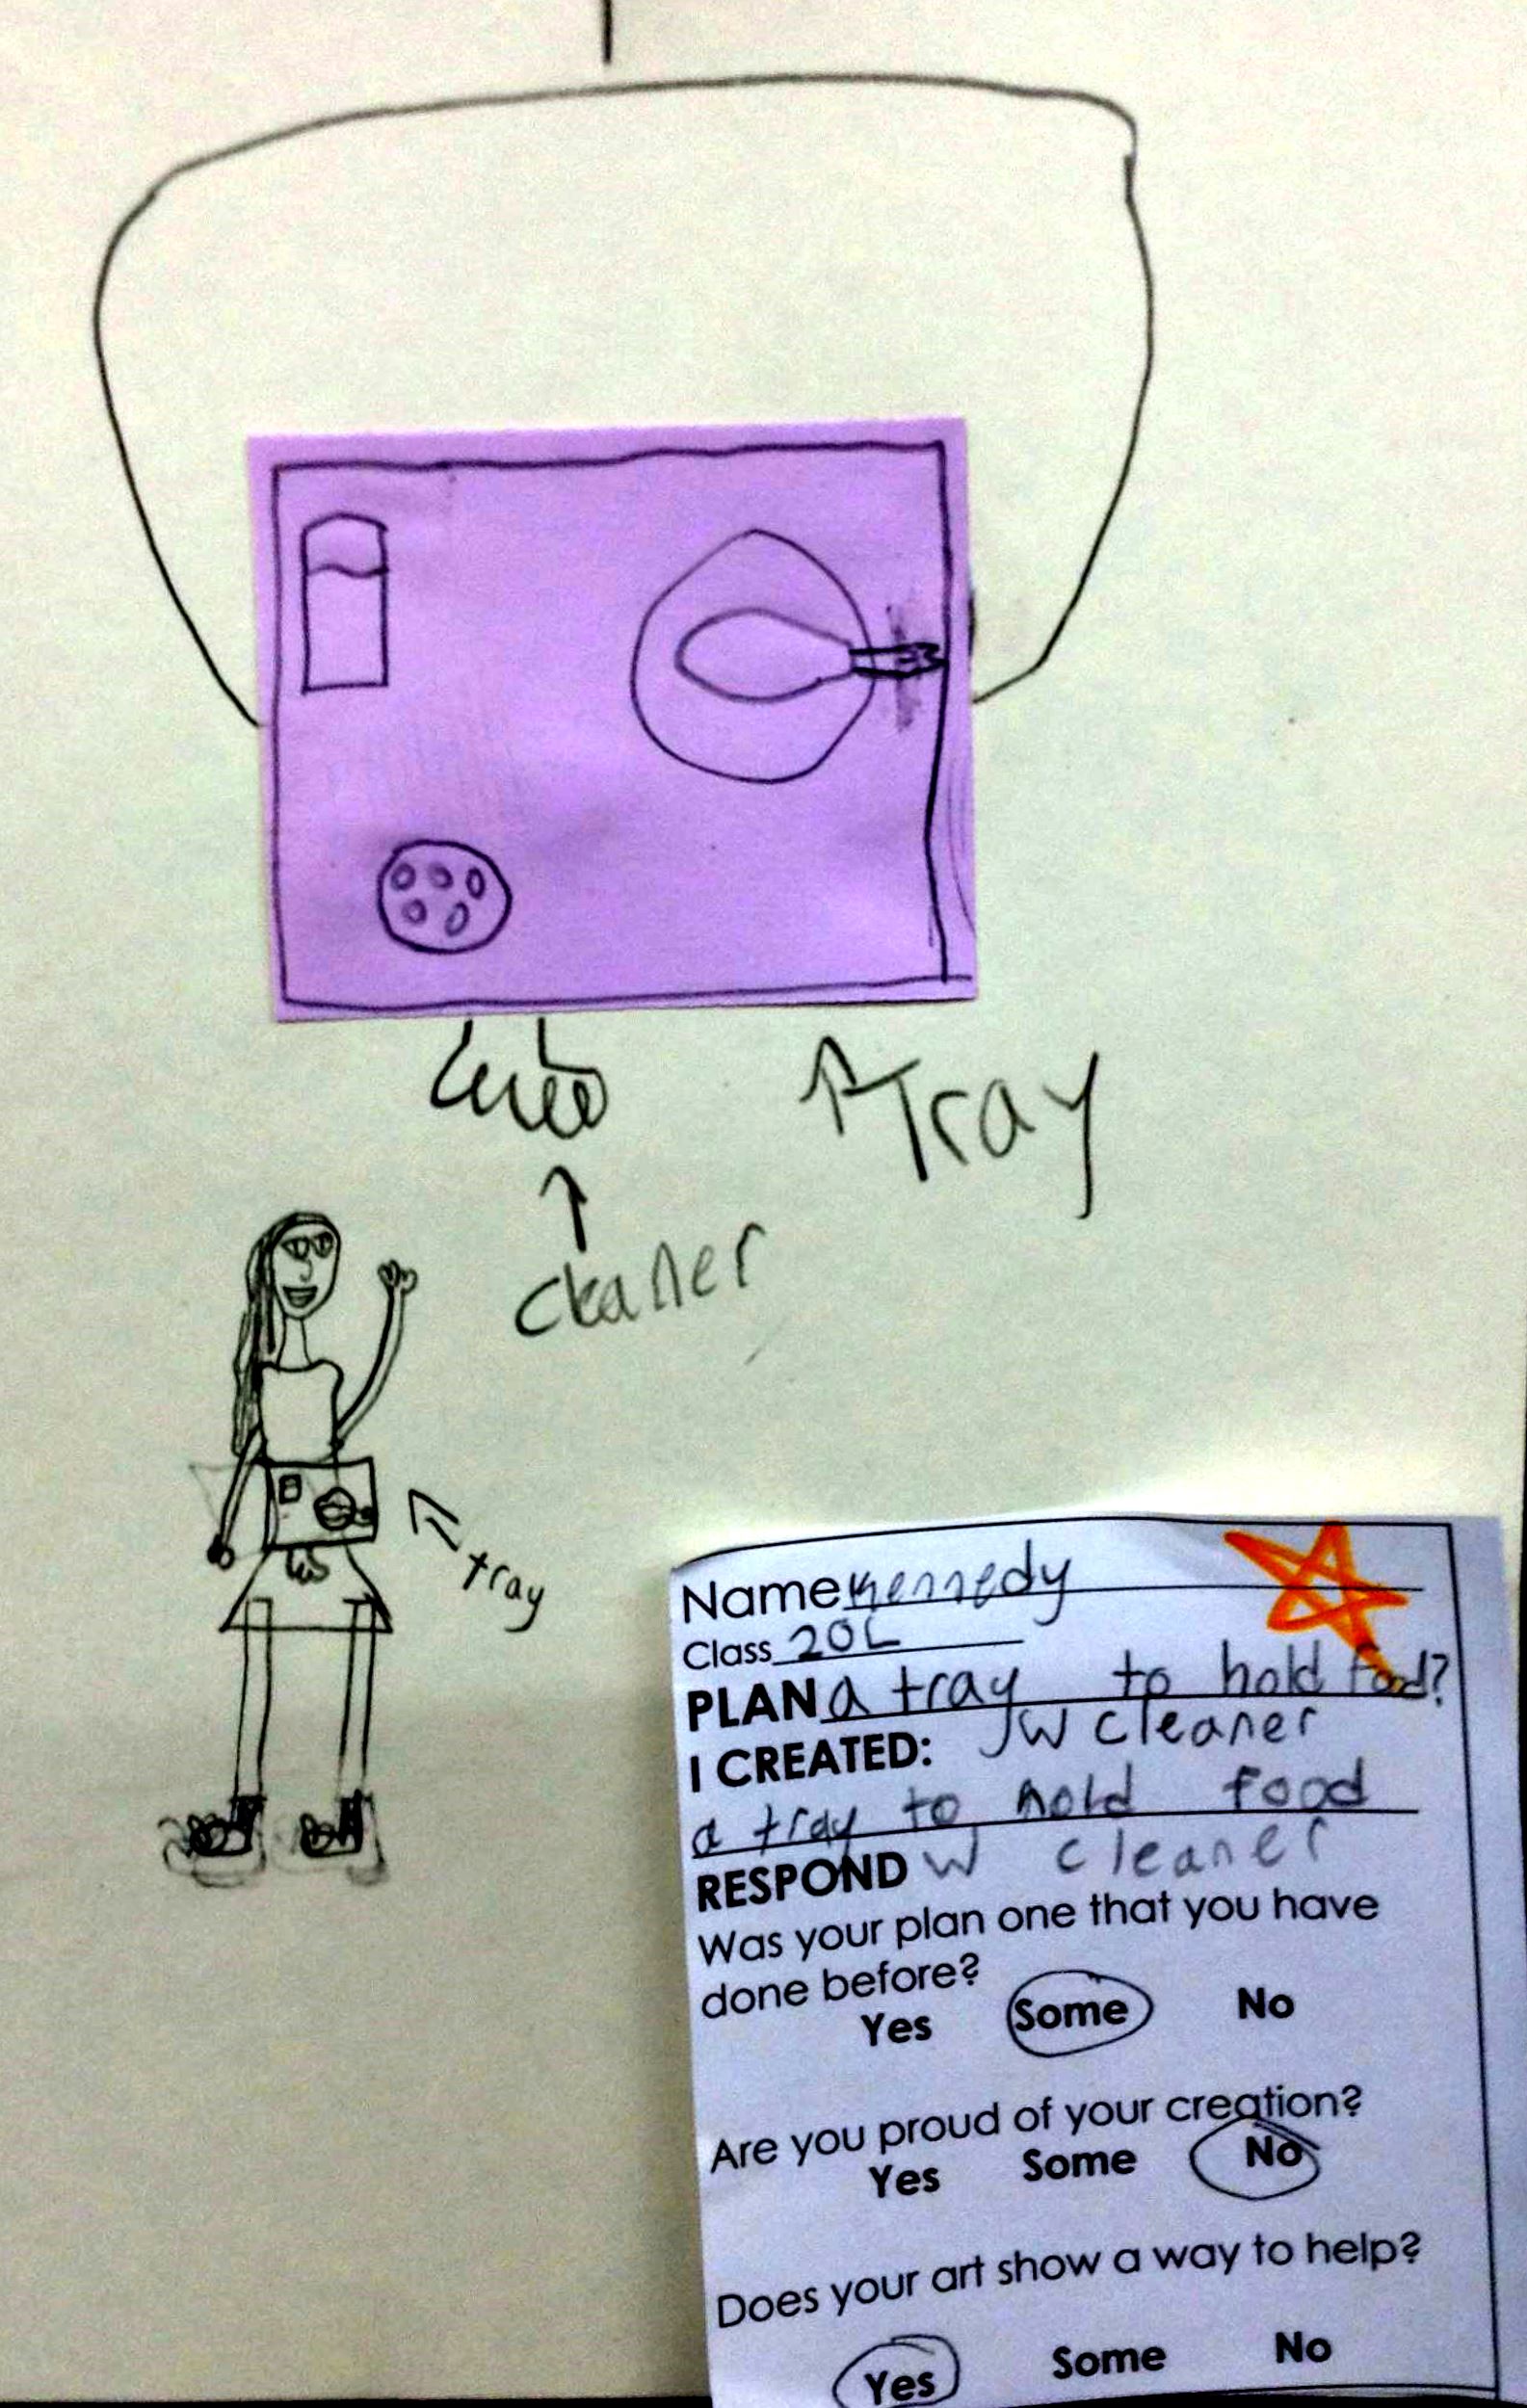 Tray
cleaner
tray
Name Kennedy
Class 20L
PLAN a tray to hold food?
w cleaner
I CREATED:
a tray to hold food
w cleaner
RESPOND
Was your plan one that you have
done before?
Yes Some No
Are you proud of your creation?
Yes Some No
Does your art show a way to help?
Yes Some No